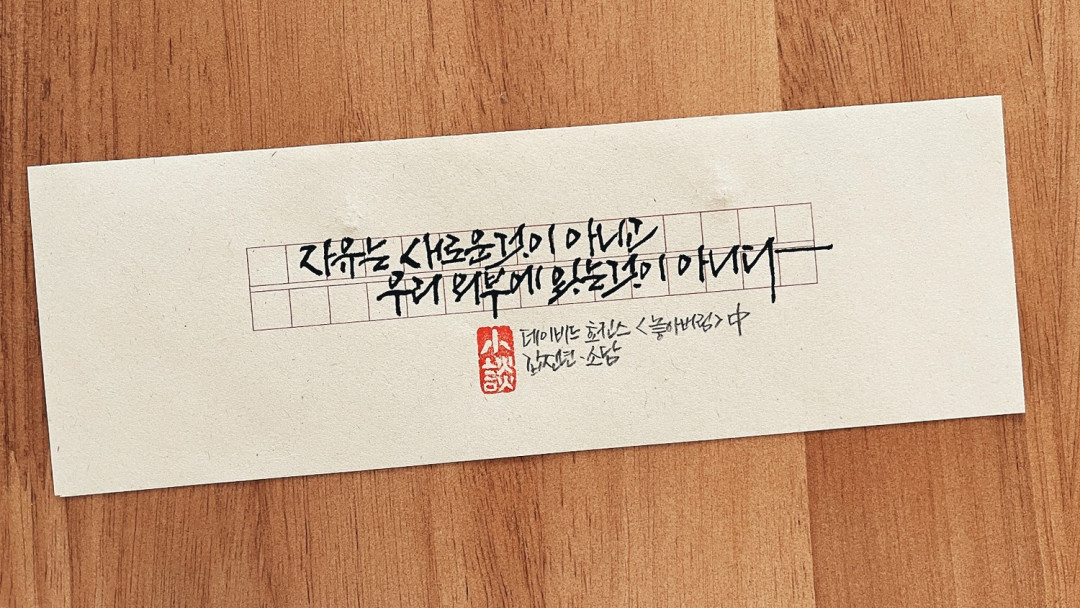 자유는 새로운것이 아니고
우리 외부에 있는것이 아니다
小談
데이비드 호킨스 <놓아버림> 中
소담